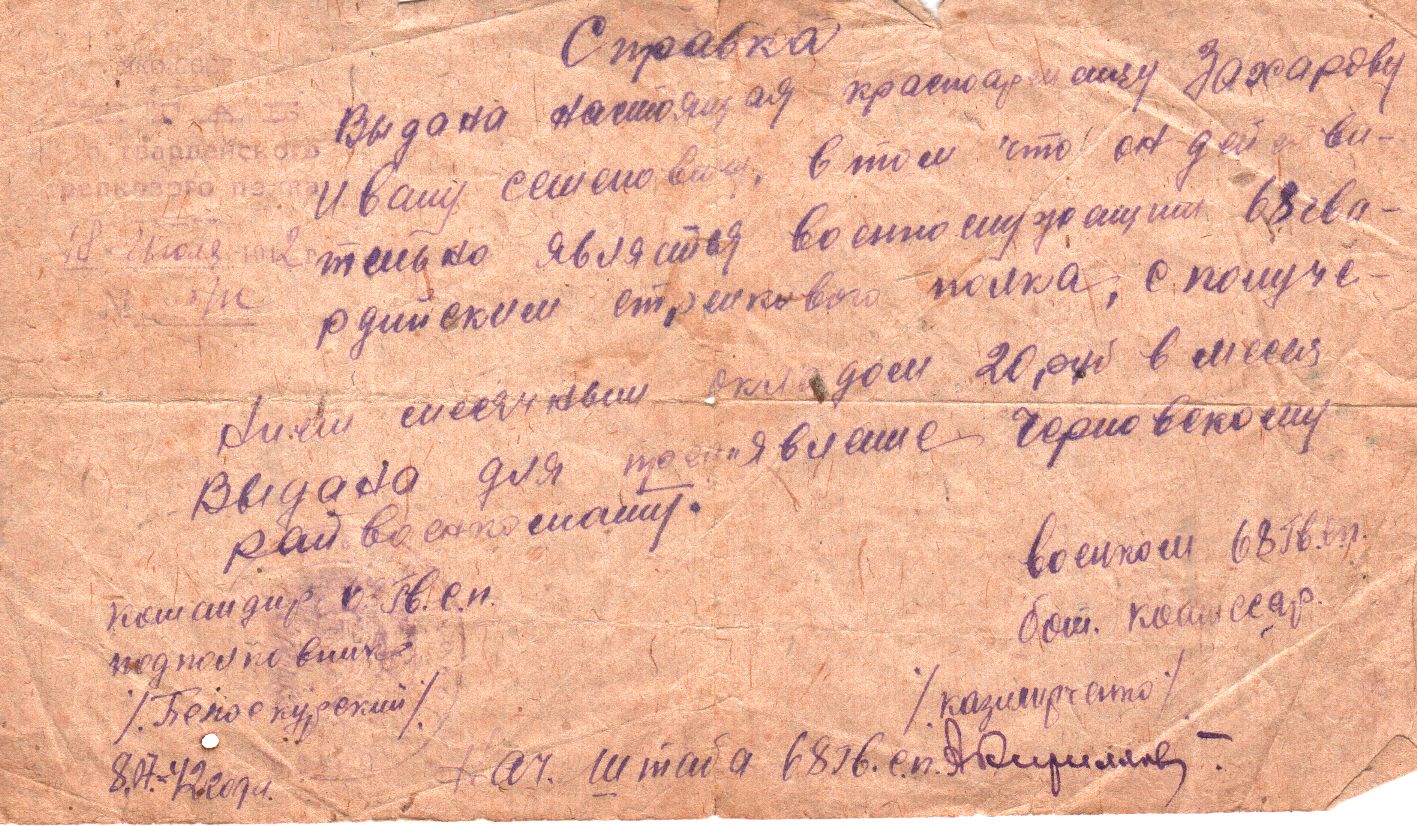 Справка
НКО.СССР
ШТАБ
гвардейского
релкового полка
18 июля 1942 г
№
Выдана настоящая красноармейцу Захарову
Ивану Семеновичу, в том что он действи-
тельно является военнослужащим 68 гва-
рдийским стрелкового полка, с получе-
нием месячным окладом 20 руб в месяц
Выдана для предъявление Черновскому
райвоенкомату.
Командир Гв.с.п.
подполковник
/Белоскурский/
военком 68 Гв.с.п.
бат. комиссар.
/казмирченко/
Нач. штаба 68 Гв.с.п.